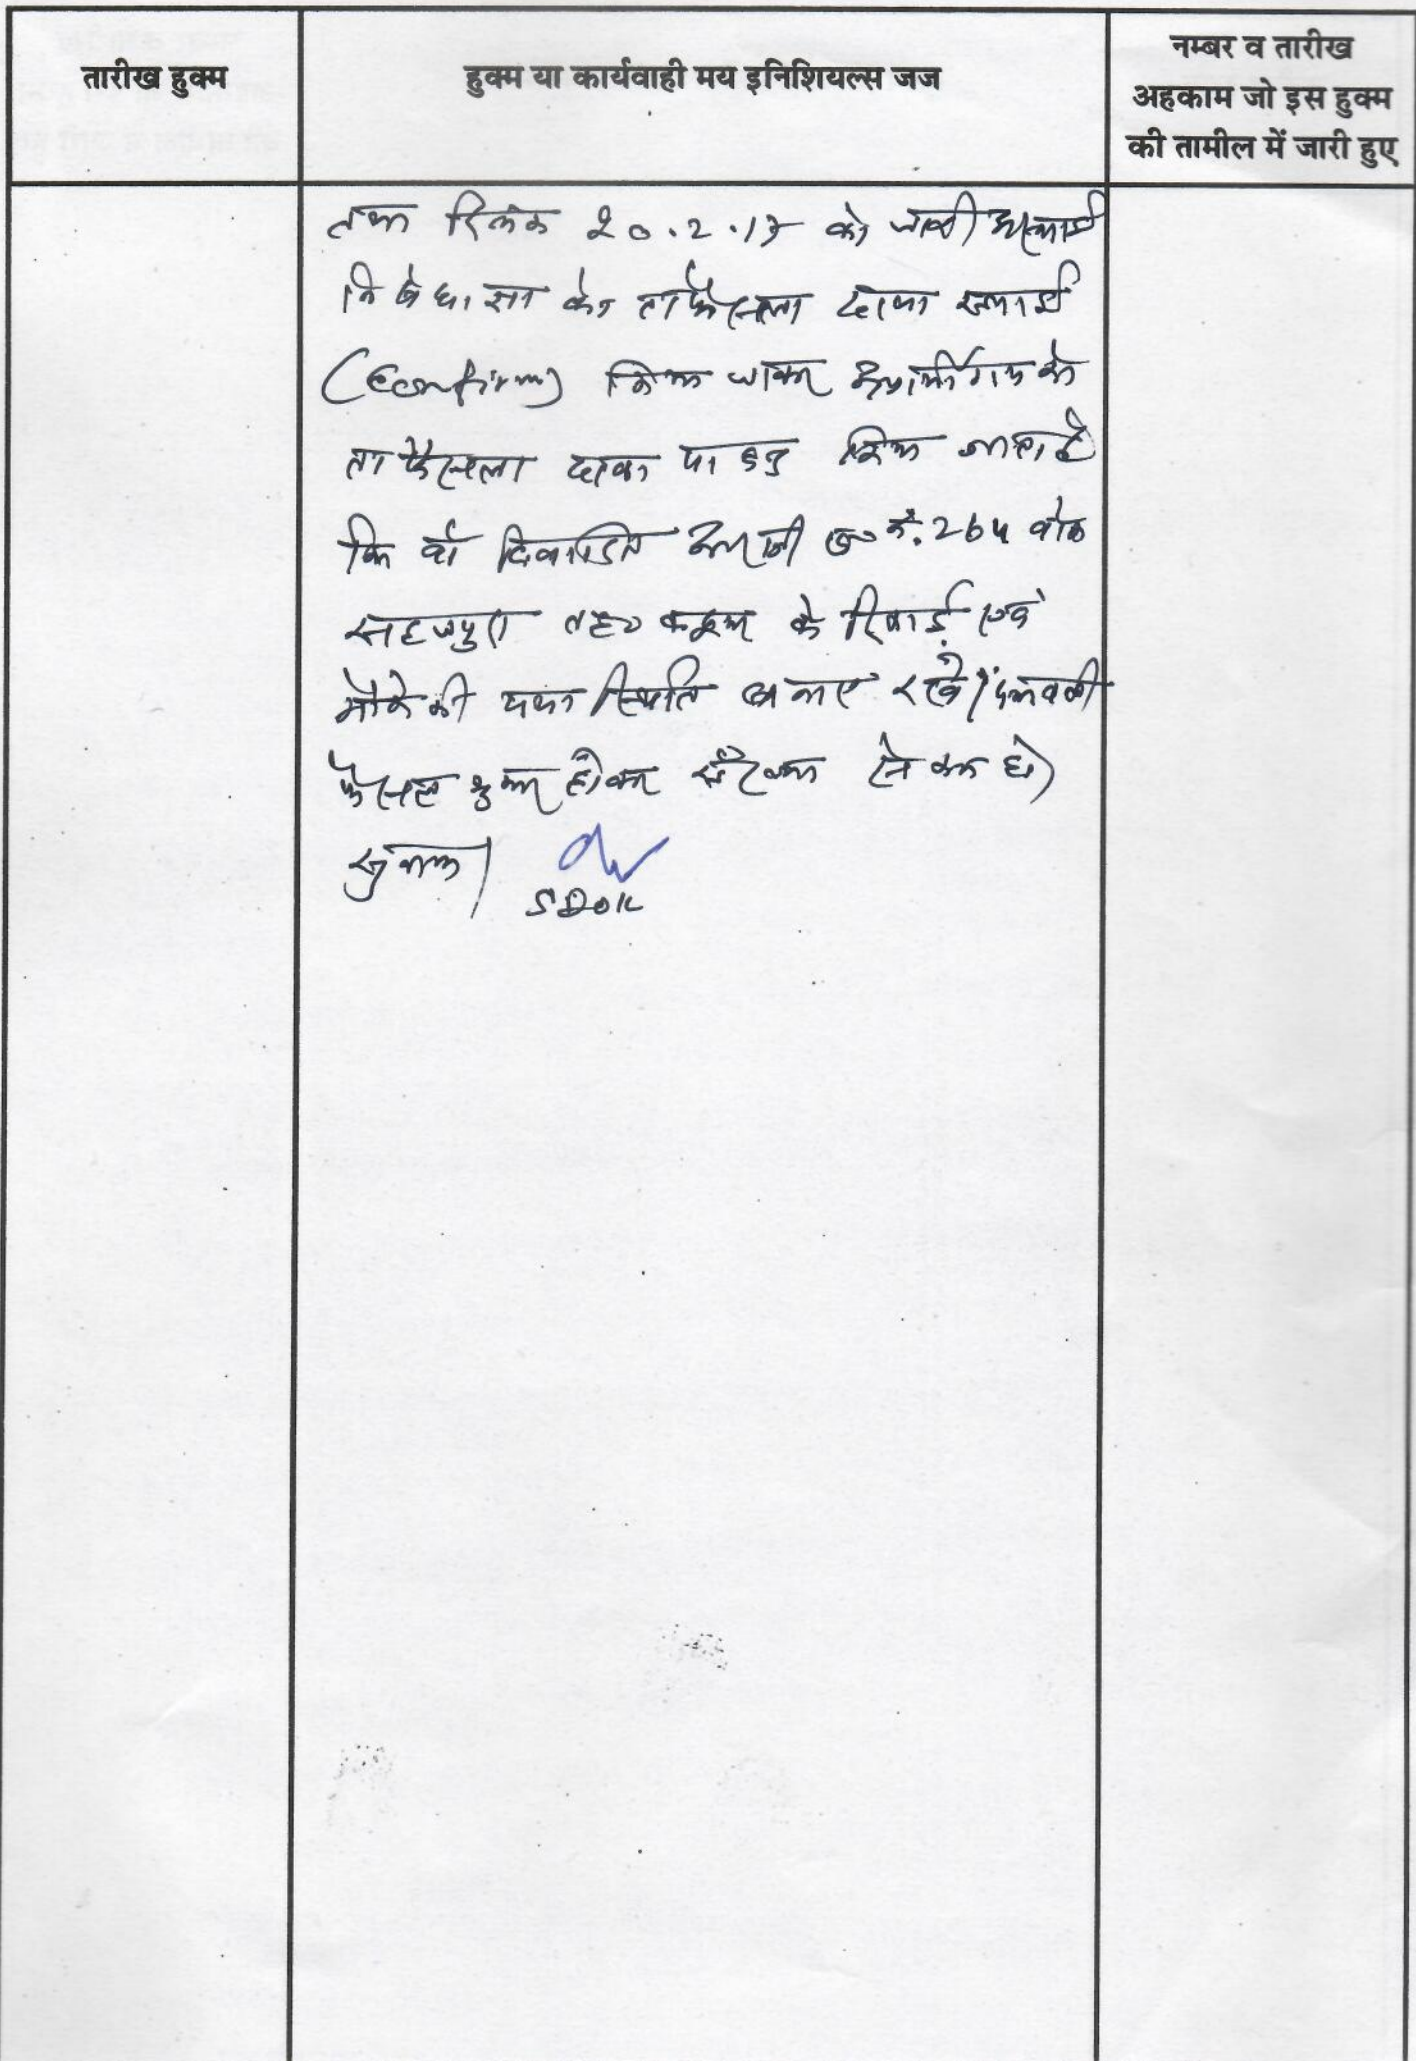 तारीख हुक्म
हुक्म या कार्यवाही मय इनिशियल्स जज
नम्बर व तारीख
अहकाम जो इस हुक्म
की तामील में जारी हुए
तथा दिनांक 20.2.17 को जारी अस्थाई
निषेधाज्ञा को ताफैसला दावा स्थाई
(Confirm) किया जाकर अप्रार्थीगण को
ताफैसला दावा पाबन्द किया जाता है
कि वो विवादित आराजी ख० नं. 264
के रिकार्ड एवं
मौके की यथास्थिति बनाए रखें। पत्रावली
फैसल शुमार होकर
SDOK